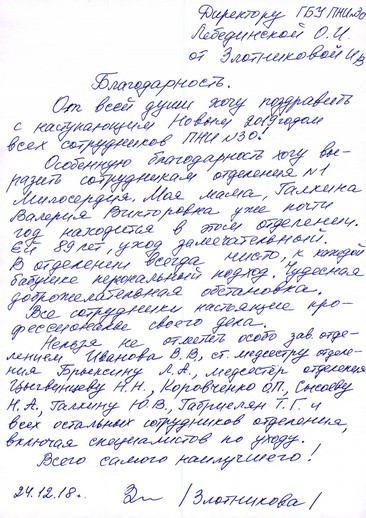 Директору ГБУ ПНИ №30
Лебединской О.И.
от Злотниковой И.В
Благодарность.
От всей души хочу поздравить
с наступающим Новым 2019 годом
всех сотрудников ПНИ №30!
Особенную благодарность хочу вы-
разить сотрудникам отделения №1
Милосердия. Моя мама, Галкина
Валерия Викторовна уже почти
год находится в этом отделении.
Ей 89 лет, уход замечательный.
В отделении всегда чисто, к каждой
бабушке персональный подход. Чудесная
доброжелательная обстановка.
Все сотрудники настоящие про-
фессионалы своего дела.
Нельзя не отметить особо зав. отде-
лением Иванова В.В, ст. медсестру отделе-
ния Брыксину Л.А., медсестёр отделения
Н.Н., Коровченко О.П., Сысоеву
Н.А., Галкину Ю.В., Габриелян Т.Г. и
всех остальных сотрудников отделения,
включая специалистов по уходу.
Всего самого наилучшего!
24.12.18г. /Злотникова/